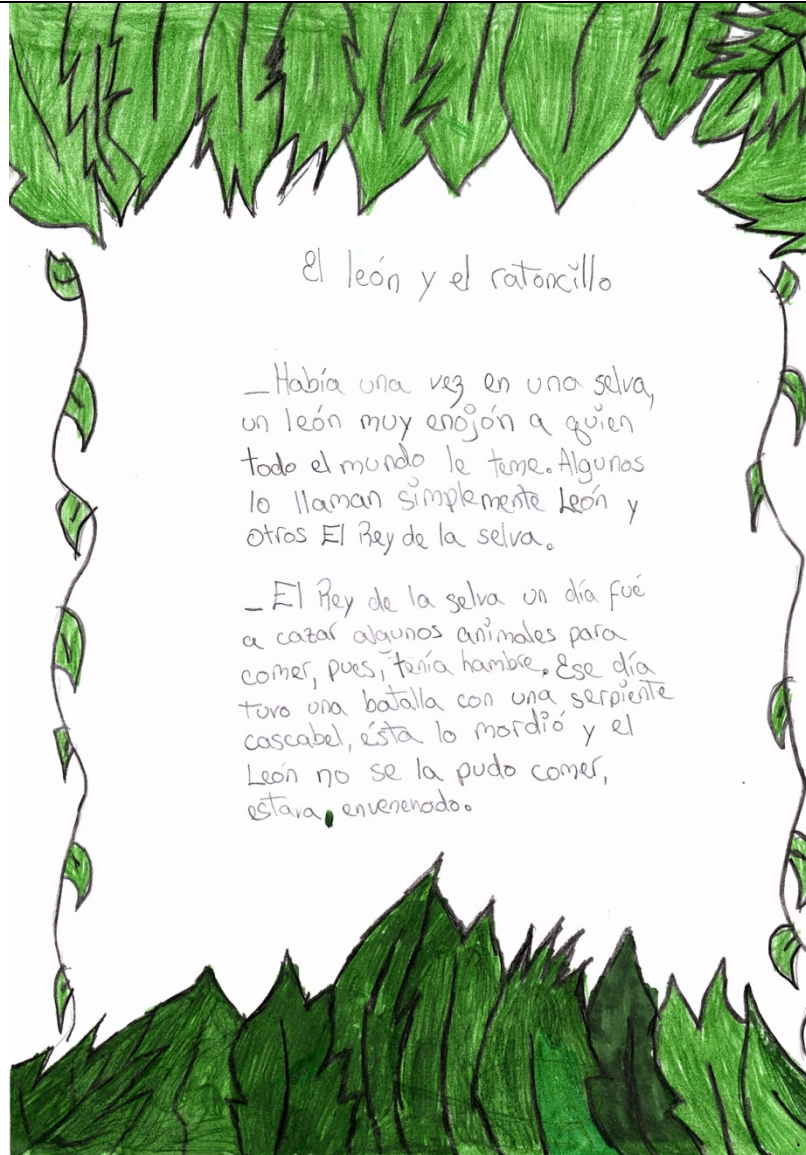 El león y el ratoncillo
_Había una vez en una selva,
un león muy enojón a quien
todo el mundo le teme. Algunos
lo llaman simplemente León y
otros El Rey de la selva.
_El Rey de la selva un día fué
a cazar algunos animales para
comer, pues, tenía hambre. Ese día
tuvo una batalla con una serpiente
cascabel, ésta lo mordió y el
León no se la pudo comer,
estava envenenado.